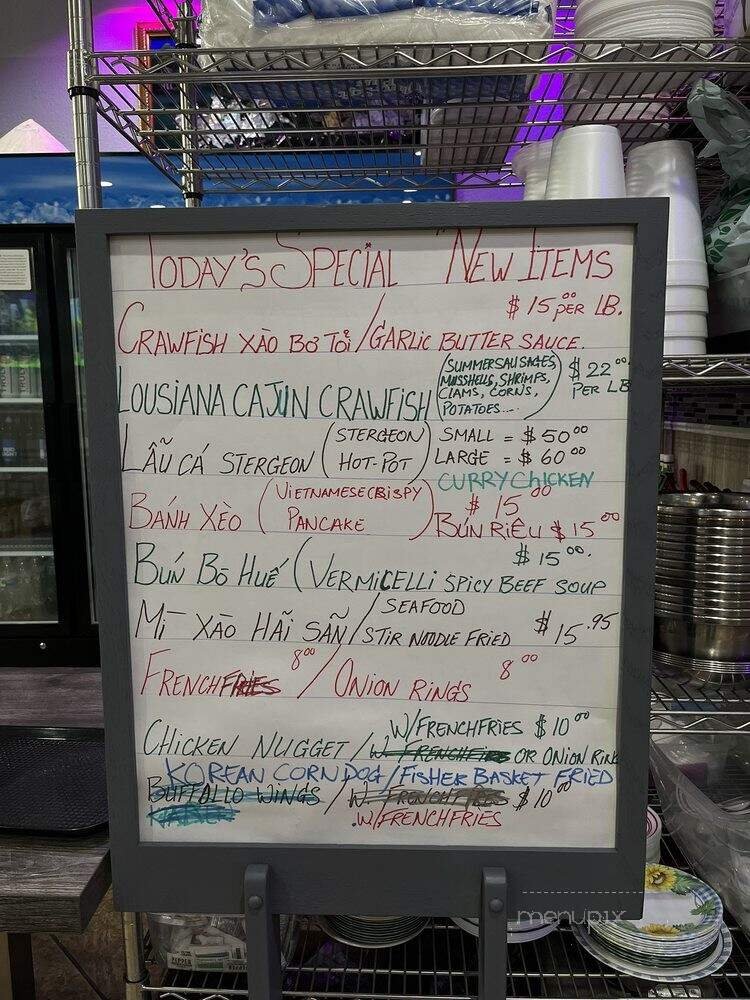 TODAY'S SPECIAL "NEW ITEMS
$ 15.00 PER LB.
CRAWFISH XÀO BƠ TỎI / GARLIC BUTTER SAUCE.
LOUSIANA CAJUN CRAWFISH (SUMMERSAUSAGES, MUSSHELLS, SHRIMPS, CLAMS, CORNS, POTATOES....) $ 22.00 PER LB
LẨU CÁ STERGEON (STERGEON HOT-POT) SMALL = $ 50.00
LARGE = $ 60.00
CURRY CHICKEN
BÁNH XÈO (VIETNAMESE CRISPY PANCAKE) $ 15.00
BÚN RIÊU $ 15.00
$ 15.00.
BÚN BÒ HUẾ (VERMICELLI SPICY BEEF SOUP
MÌ XÀO HÃI SÃN / SEAFOOD STIR NOODLE FRIED $ 15.95
FRENCHFRIES 8.00 / ONION RINGS 8.00
W/FRENCHFRIES $ 10.00
CHICKEN NUGGET / OR ONION RING
KOREAN CORNDOG / FISHER BASKET FRIED
BUFFALLO WINGS / $ 10.00
.W/FRENCHFRIES
menupix